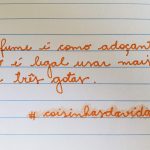 fume é como adoçant
é legal usar mais
três gotas.
#coisinhasdavida